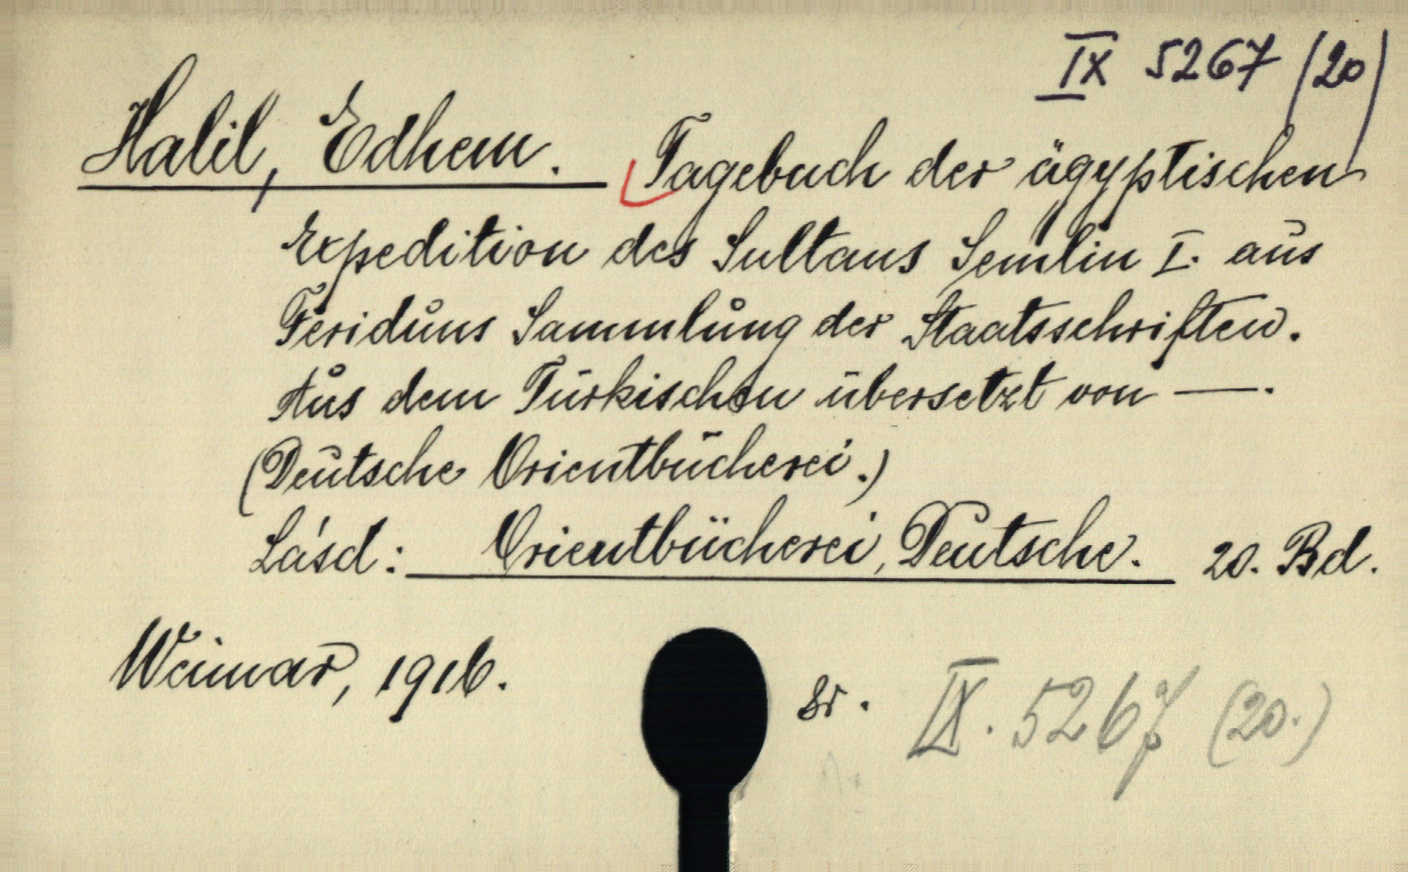 IX 5267 /20/
Halil, Edhem. Tagebuch der ägyptischen
Expedition des Sultans Semlin I. aus
Feriduns Sammlung der Staatsschriften.
Aus dem Türkischen übersetzt von —.
(Deutsche Orientbücherei.)
Lásd: Orientbücherei, Deutsche. 20. Bd.
Weimar, 1916.
8r. IX. 5267 (20.)